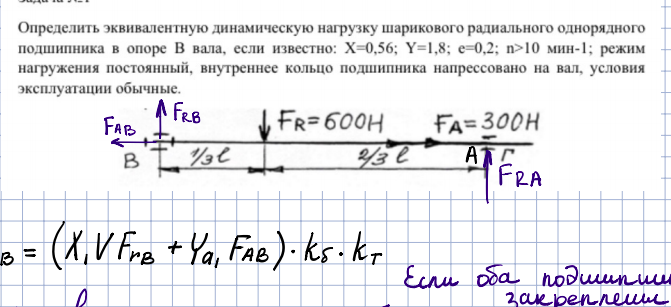 Определить эквивалентную динамическую нагрузку шарикового радиального однорядного
подшипника в опоре В вала, если известно: X=0,56; Y=1,8; e=0,2; n>10 мин-1; режим
нагружения постоянный, внутреннее кольцо подшипника напрессовано на вал, условия
эксплуатации обычные.
FRB
FAB
FR=600H
FA=300H
B
1/3 l
2/3 l
A
Г
FRA
B = (X1 V FrB + Ya1 FAB) · kδ · kT
Если оба
закреплены